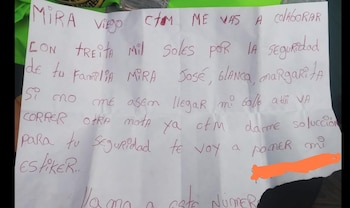 MIRA VIEJO CTM ME VAS A COLABORAR
CON TREITA MIL SOLES POR LA SEGURIDAD
DE tU FAMILIA MIRA JOSÉ, BLANCA, MARGARITA
SI NO ME ASEN LLEGAR MI AHI VA
CORRER OTRA MOTA YA CTM DAME SOLUCCION
PARA tU SEGURIDAD TE VOY A PONER MI
ESTIKER..
LLAMA A ESTE NUMERO